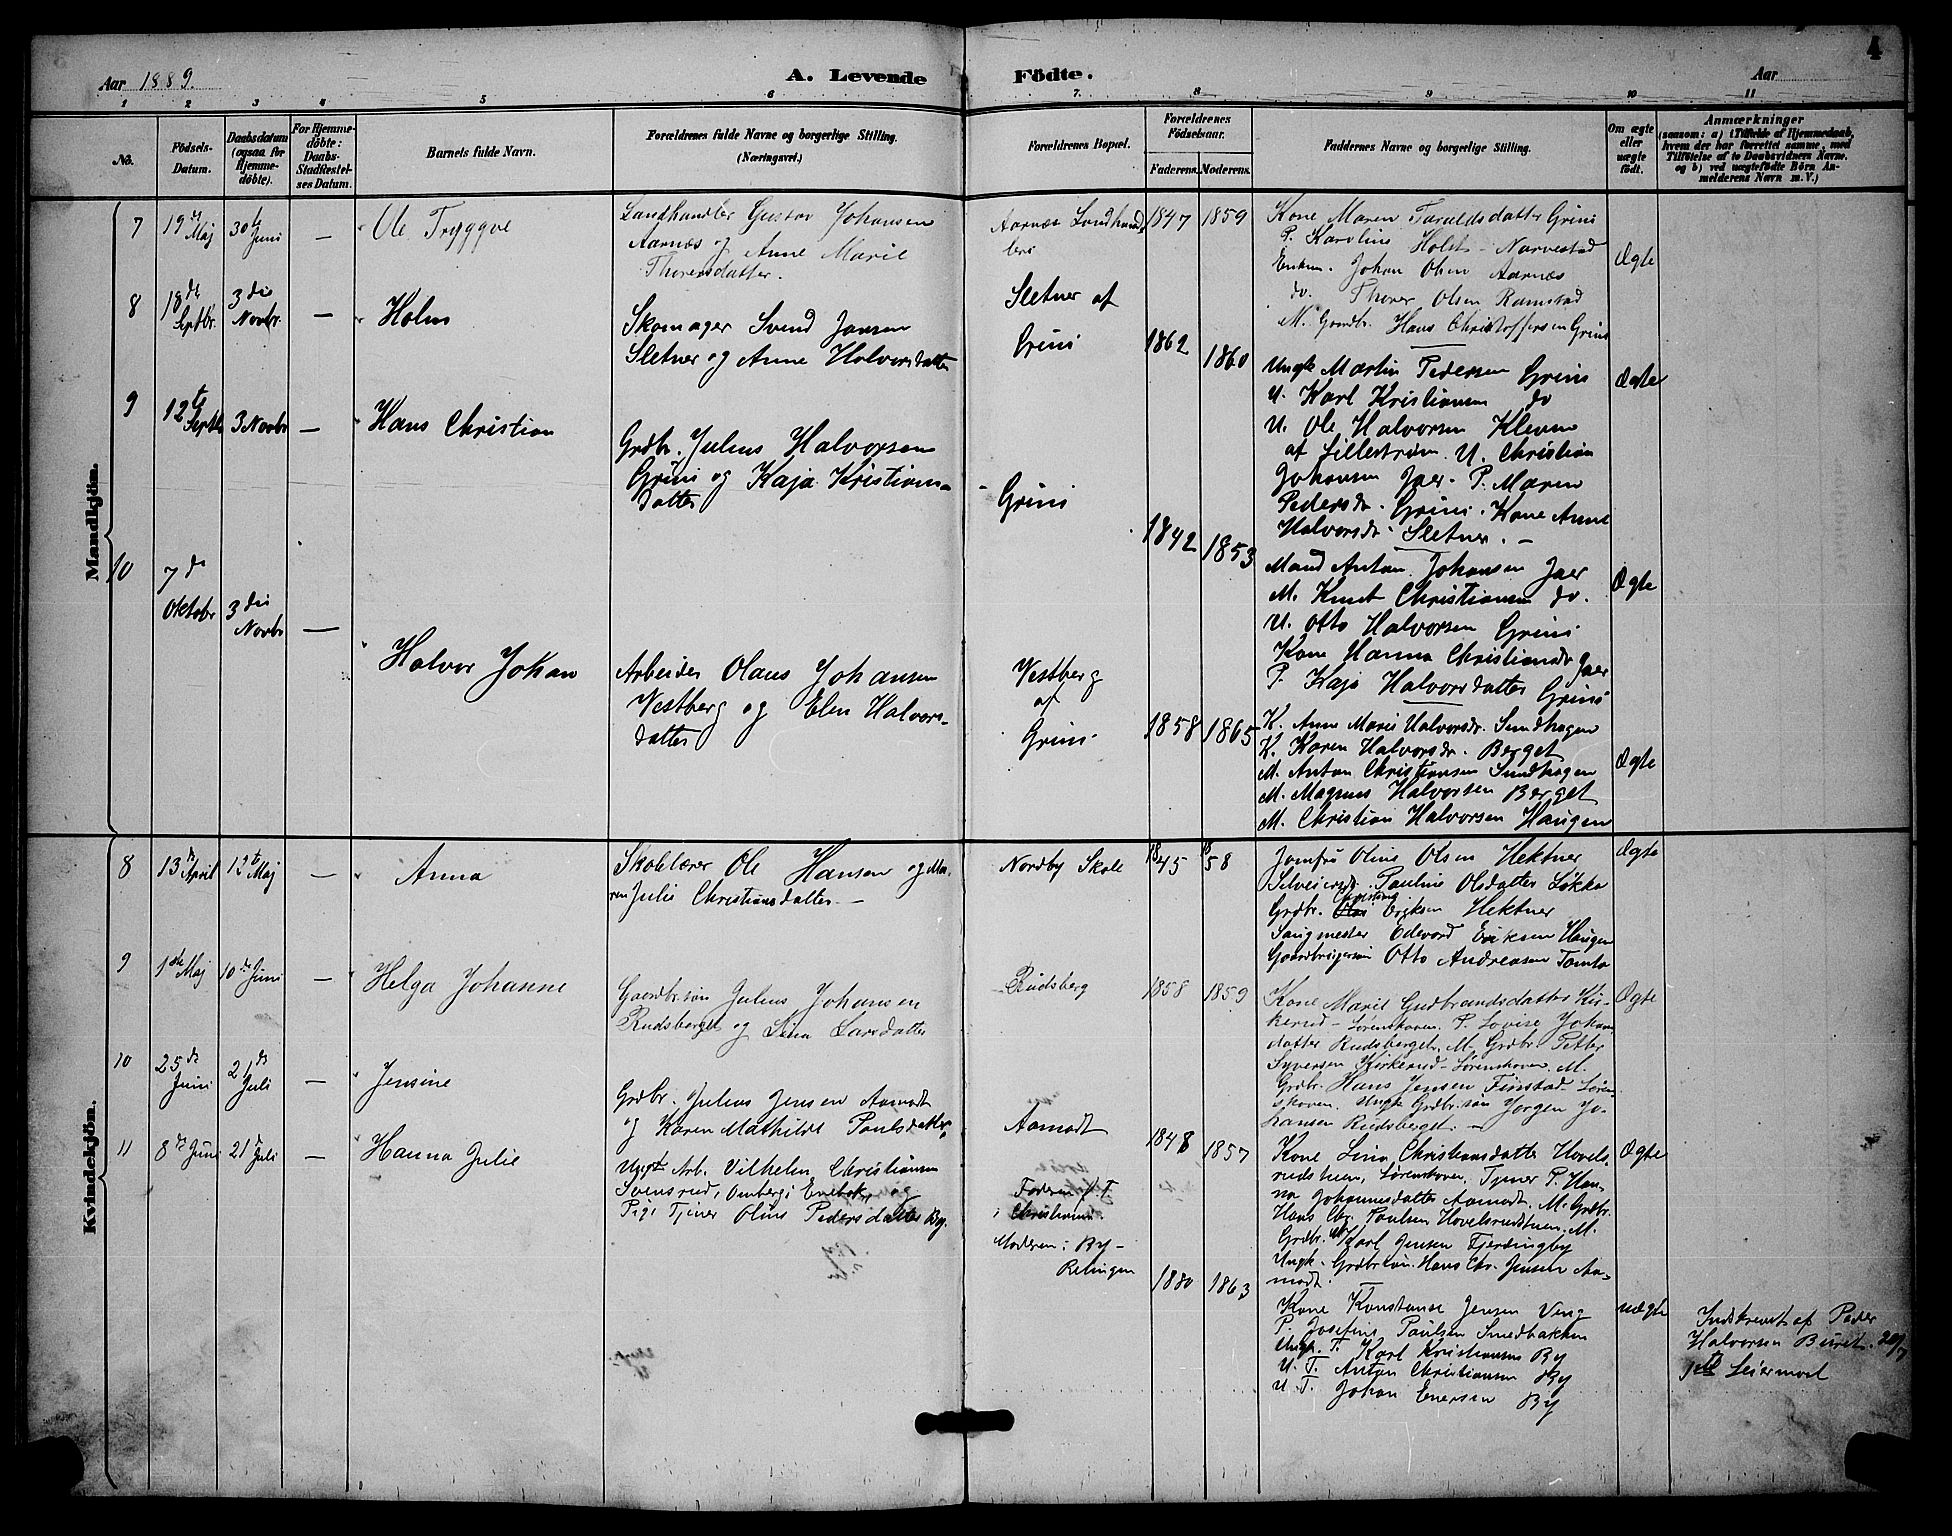 Aar 1889.
A. Levende Födte.
Aar
4
1 2 3 4 5 6 7. 8 9 10 11
No.
Födsels-Datum.
Daabsdatum (ogsaa for Hjemme-döbte).
For Hjemme-döbte: Daabs-Stadfæstel-ses Datum.
Barnets fulde Navn.
Forældrenes fulde Navne og borgerlige Stilling.
(Næringsvei.)
Forældrenes Bopæl.
Forældrenes Födselsaar.
Faderens. Moderens.
Faddernes Navne og borgerlige Stilling.
Om ægte eller uægte födt.
Anmærkninger
(saasom: a) i Tilfælde af Hjemmedaab, hvem der har forrettet samme, med Tilföielse af to Daabsvidners Navne. og b) ved uægtefödte Börn An-melderens Navn m. V.)
Mandkjön.
7
19de Maj
30te Juni
—
Ole Tryggve
Landhandler Gustav Johansen
Aarnæs og Anne Marie
Thorersdatter.
Aarnæs
1847
1859
Kone Maren Taraldsdatter Grini
P. Karoline Holst - Narvestad
Enkem. Johan Olsen Aarnæs
do. Thorer Olsen Ramstad
M. Gordbr. Hans Christoffersen Grini
Ægte
8
18de Septbr.
3die Novbr.
—
Holm
Skomager Svend Jansen
Sletner og Anne Halvorsdatter
Sletner af
Grini
1862
1860
Ungk Martin Pedersen Grini
U. Karl Kristiansen do
U. Ole Halvorsen Kleven
af Lillestrøm. U. Christian
Johansen Jaer. P. Maren
Pedersdr. Grini. Kone Anne
Halvorsdr Sletner. —
Ægte
9
12te Septbr
3 Novbr
—
Hans Christian
Grdbr. Julius Halvorsen
Grini og Kaja Kristians-
datter
Grini
1842
1853
Mand Anton Johansen Jaer
M. Knut Christiansen do.
U. Otto Halvorsen Grini
Kone Hanna Christiansdr Jaer
P. Kaja Halvorsdatter Grini
Ægte
10
7de
Oktobr
3die
Novbr
—
Halvor Johan
Arbeider Olaus Johansen
Vestberg og Elen Halvors-
datter
Vestberg
af
Grini
1858
1865
K. Anne Marie Halvorsdr. Sundhagen
K. Karen Halvorsdr. Berget
M. Anton Christiansen Sundhagen
M. Magnus Halvorsen Berget
M. Christian Halvorsen Haugen
Ægte
Kvindekjön.
8
13de April
12te Maj
—
Anna
Skolelærer Ole Hansen og Ma-
ren Julie Christiansdatter —
Nordby Skole
1845
1858
Jomfru Oline Olsen Hektner
Pauline Olsdatter Løkka
Grdbr. Eriksen Hektner
Sangmester Edevard Eriksen Haugen
Otto Andreasen Tomta
Ægte
9
1ste Maj
10de Juni
—
Helga Johanne
Gaardbr.søn Julius Johansen
Rudsberget og Lina Larsdatter
Rudsberg
1858
1859
Kone Marie Gudbrandsdatter Kir-
kerud - Lørenskoven. P. Lovise Johans-
datter Rudsberget. M. Grdbr. Petter
Syversen Kirkerud - Lørenskoven. M.
Grdbr. Hans Jensen Finstad - Løren-
skoven. Ungk Grdbr.søn Jørgen Jo-
hansen Rudsberget. —
Ægte
10
25de
Juni
21de
Juli
—
Jensine
Grdbr. Julius Jensen Aamodt
og Karen Mathilde Paulsdatter
Aamodt
1848
1857
Kone Lina Christiansdatter Hovels-
rudstuen, Lørenskoven. Tjener P. Han-
na Johannesdatter Aamodt. M. Grdbr.
Hans Chr. Paulsen Hovelsrudstuen. M.
Grdbr. Karl Jensen Fjerdingby
Ungk. Grdbr.søn. Hans Chr. Jensen Aa-
modt.
Ægte
11
8de Juni
21de Juli
—
Hanna Julie
Ungk. Arb. Vilhelm Christiansen
Svensrud, Enebak, og
Pige Tjener Oline Pedersdatter By.
Faderen p. T.
i Christiania.
Moderen: By -
Relingen
1880
1863
Kone Konstanse Jensen Veng
P. Josefine Paulsen Smedbakken
Ungk. T. Karl Kristiansen By
U. T. Anton Christiansen By
U. T. Johan Enersen By
uægte
Indskrevet af Peder
Halvorsen Buret. 20/7
Leiermaal